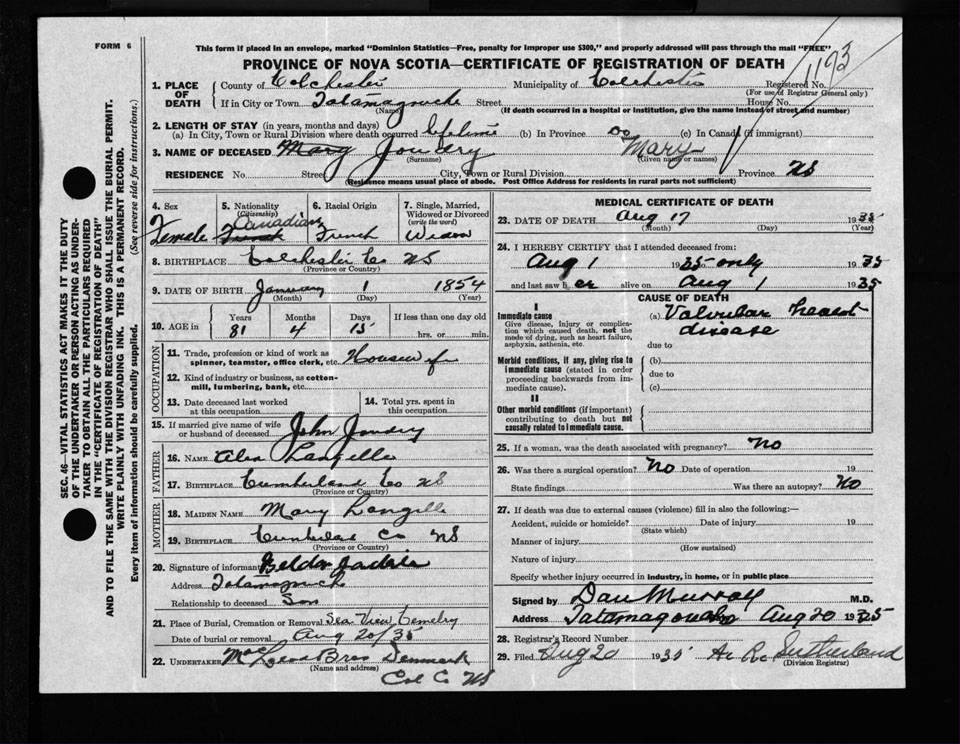 FORM 6
1193
This form if placed in an envelope, marked "Dominion Statistics—Free, penalty for improper use $300," and properly addressed will pass through the mail "FREE"
PROVINCE OF NOVA SCOTIA—CERTIFICATE OF REGISTRATION OF DEATH
1. PLACE OF DEATH County of Colchester Municipality of Colchester Registered No.
(For use of Registrar General only)
If in City or Town Tatamagouche Street House No.
(Name) (If death occurred in a hospital or institution, give the name instead of street and number)
2. LENGTH OF STAY (in years, months and days)
(a) In City, Town or Rural Division where death occurred Lifetime (b) In Province Do (c) In Canada (if immigrant)
3. NAME OF DECEASED Mary Joudry Mary
(Surname) (Given name or names)
RESIDENCE No. Street City, Town or Rural Division Province NS
(Residence means usual place of abode. Post Office Address for residents in rural parts not sufficient)
4. Sex Female
5. Nationality (Citizenship) Canadian French
6. Racial Origin French
7. Single, Married, Widowed or Divorced (write the word) Widow
8. BIRTHPLACE Colchester Co NS
(Province or Country)
9. DATE OF BIRTH January 1 1854
(Month) (Day) (Year)
10. AGE in Years Months Days If less than one day old
81 4 15 hrs. or min.
OCCUPATION
11. Trade, profession or kind of work as spinner, teamster, office clerk, etc.
12. Kind of industry or business, as cotton-mill, lumbering, bank, etc.
13. Date deceased last worked at this occupation
14. Total yrs. spent in this occupation
15. If married give name of wife or husband of deceased John Joudry
FATHER
16. NAME Alex Langille
17. BIRTHPLACE Cumberland Co NS
(Province or Country)
MOTHER
18. MAIDEN NAME Mary Langille
19. BIRTHPLACE Co NS
(Province or Country)
20. Signature of informant
Address Tatamagouche
Relationship to deceased Son
21. Place of Burial, Cremation or Removal Sea View Cemetry
Date of burial or removal Aug 20/35
22. UNDERTAKER Bros Denmark
(Name and address)
Col Co NS
MEDICAL CERTIFICATE OF DEATH
23. DATE OF DEATH Aug 17 1935
(Month) (Day) (Year)
24. I HEREBY CERTIFY that I attended deceased from:
Aug 1 1935 only 1935
and last saw h er alive on Aug 1 1935
CAUSE OF DEATH
I
Immediate cause (a) Valvular heart disease
Give disease, injury or complication which caused death, not the mode of dying, such as heart failure, asphyxia, asthenia, etc.
due to
Morbid conditions, if any, giving rise to immediate cause (stated in order proceeding backwards from immediate cause).
(b)
due to
(c)
II
Other morbid conditions (if important) contributing to death but not causally related to immediate cause.
25. If a woman, was the death associated with pregnancy? No
26. Was there a surgical operation? No Date of operation 19
State findings Was there an autopsy? No
27. If death was due to external causes (violence) fill in also the following:—
Accident, suicide or homicide? Date of injury 19
(State which)
Manner of injury
(How sustained)
Nature of injury
Specify whether injury occurred in industry, in home, or in public place
Signed by Dan Murray M.D.
Address Tatamagouche Aug 20 1935
28. Registrar's Record Number
29. Filed Aug 20 1935 Sutherland
(Division Registrar)
SEC. 46—VITAL STATISTICS ACT MAKES IT THE DUTY
OF THE UNDERTAKER OR PERSON ACTING AS UNDER-
TAKER TO OBTAIN ALL THE PARTICULARS REQUIRED
IN THE "CERTIFICATE OF REGISTRATION OF DEATH"
AND TO FILE THE SAME WITH THE DIVISION REGISTRAR WHO SHALL ISSUE THE BURIAL PERMIT.
WRITE PLAINLY WITH UNFADING INK. THIS IS A PERMANENT RECORD.
Every item of information should be carefully supplied. (See reverse side for instructions.)